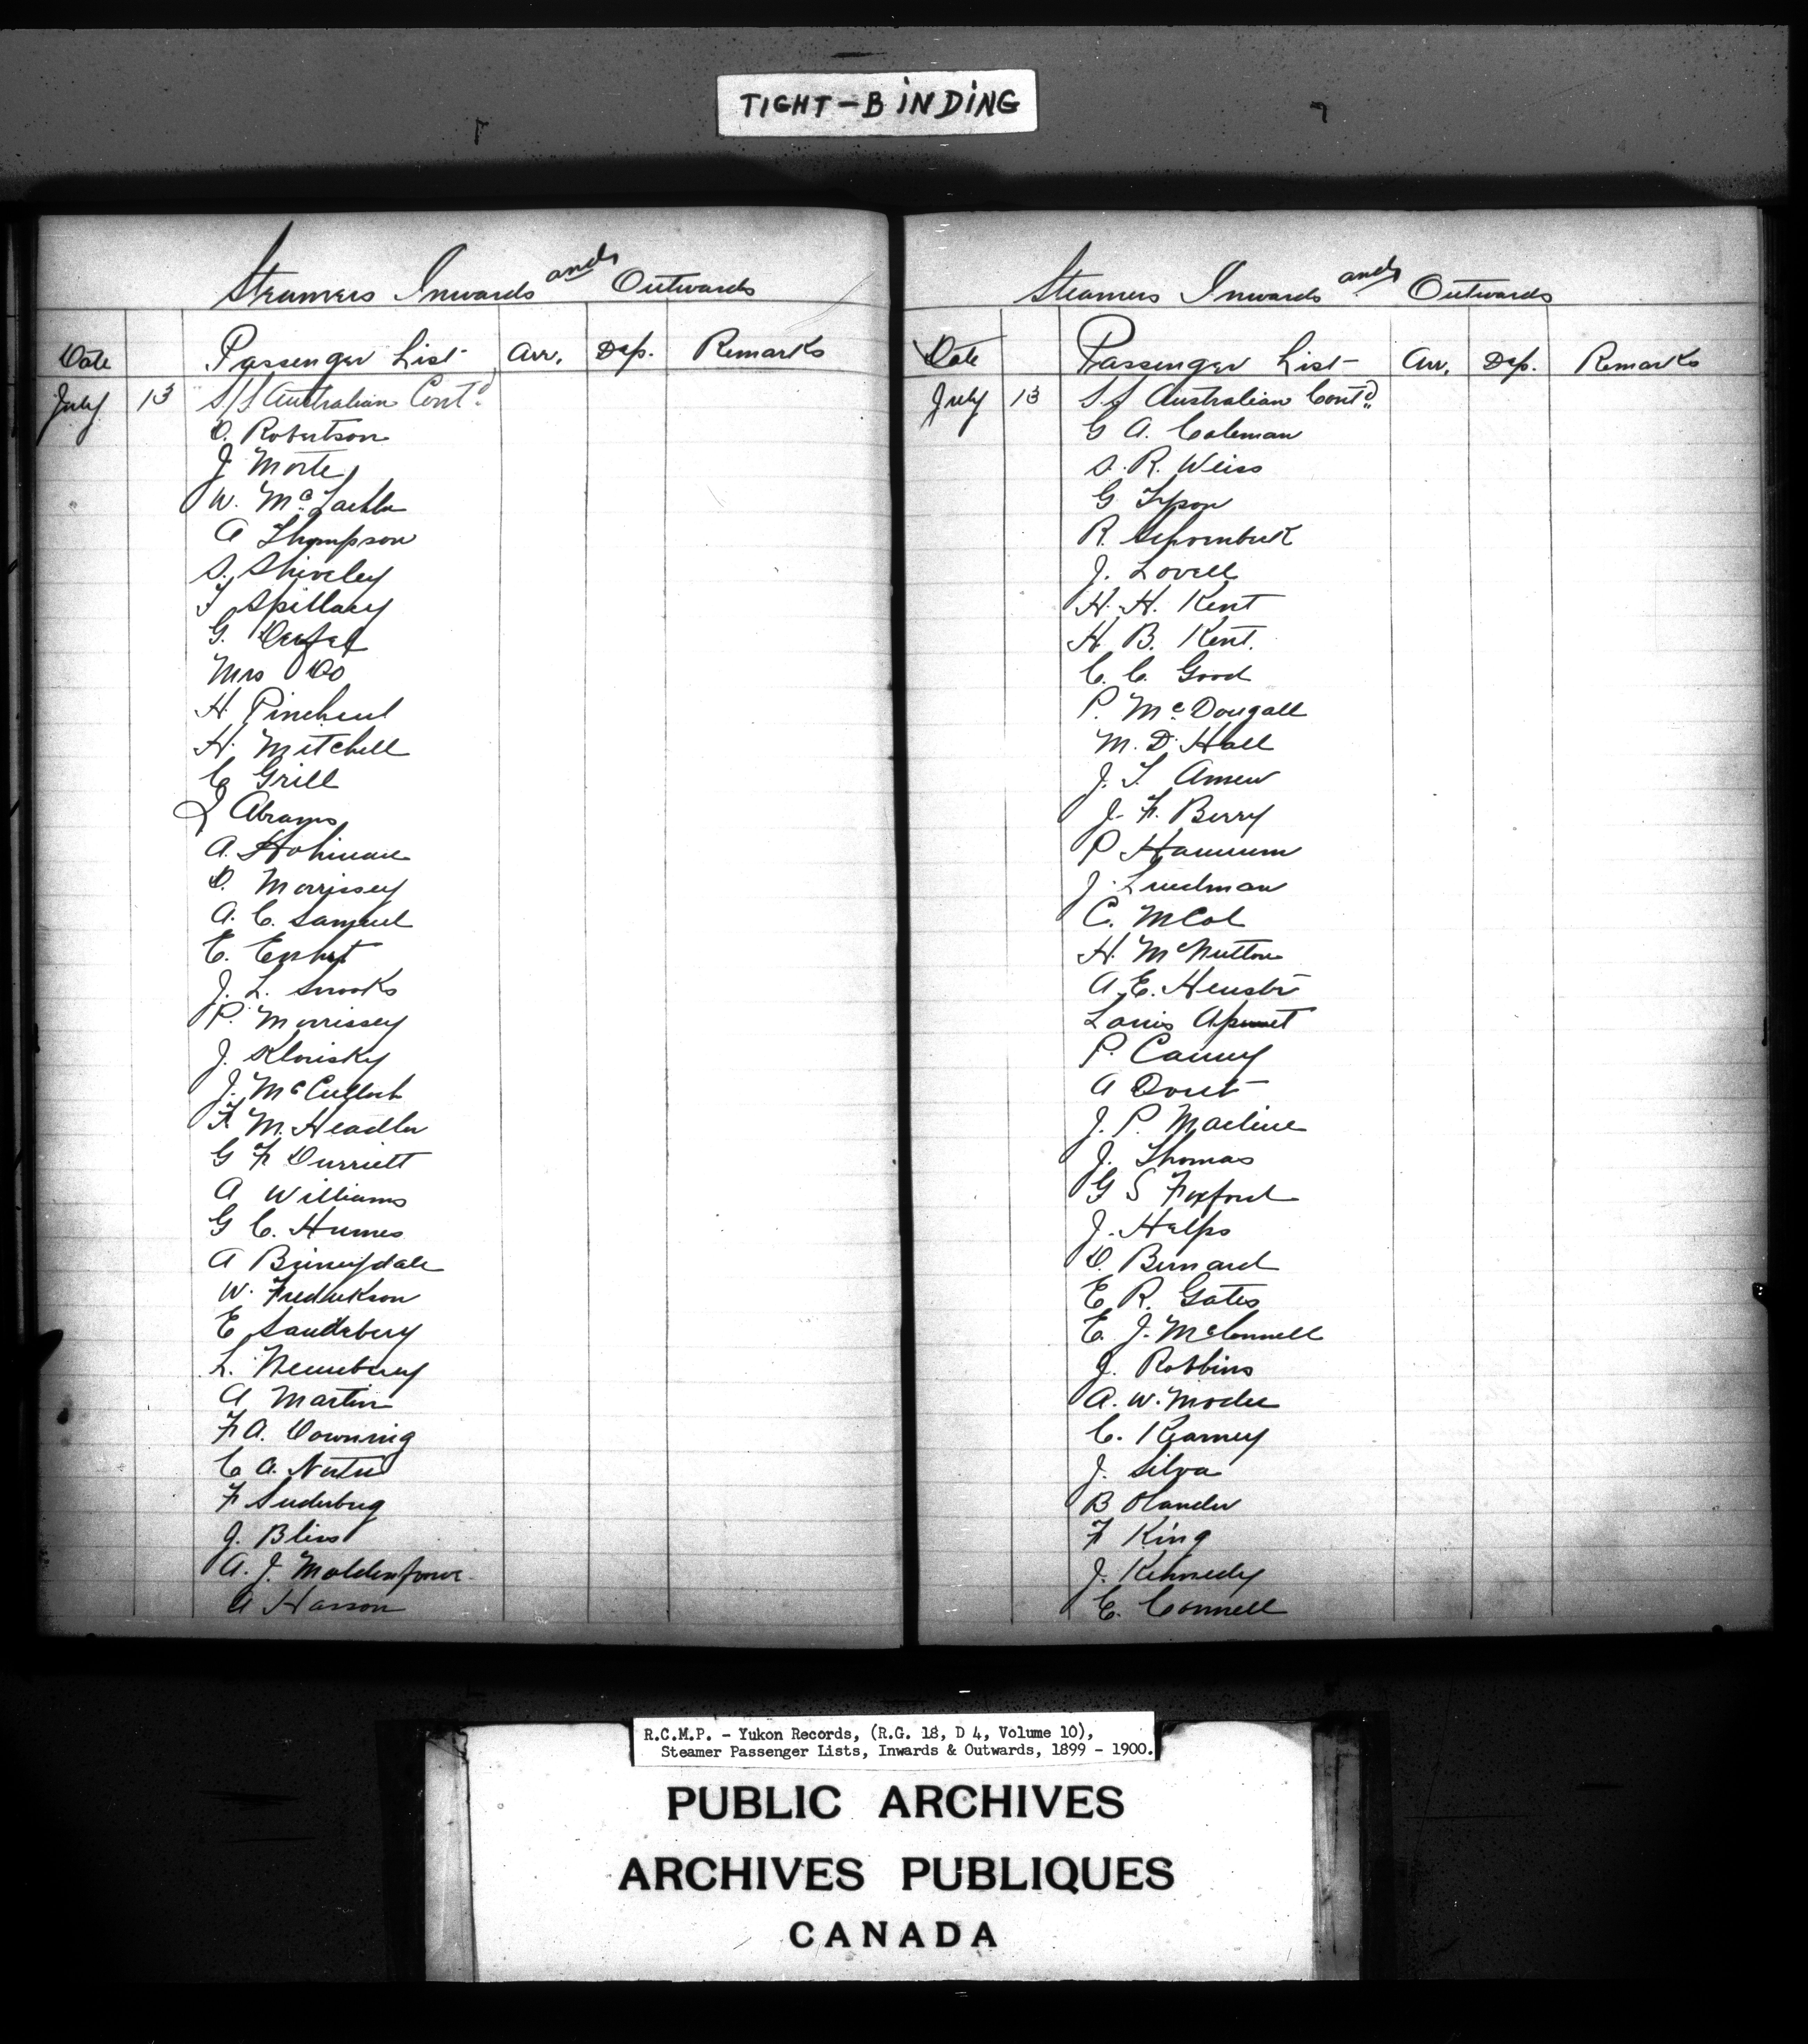 TIGHT-BINDING
Steamers Inwards and Outwards
Date Passenger List Arr. Dep. Remarks
July 13 S/S Australian Cont'd
D. Robertson
J Morte
W. Mc
A Thompson
S. Shiveley
T Spillacy
G.
Mrs Do
H Pincheul
H. Mitchell
C Grill
J Abrams
A. Hohman
D. Morrissey
A. C. Samuel
E.
J. L. Snooks
P. Morrissey
J. Klonisky
J. McCulloch
F M. Headler
G F Durriett
A Williams
G C. Humes
A
W. Fredrikson
E Sandeberg
L.
A Martin
F A. Downing
C A.
F Suderburg
J. Bliss
A. J.
A Hasson
Steamers Inwards and Outwards
Date Passenger List Arr. Dep. Remarks
July 13 S.S Australian Cont'd
G A. Coleman
S. R. Weiss
G Tyson
R.
J. Lovell
H. H. Kent
H B. Kent.
C. C. Good
P. McDougall
M. D. Hall
J. T.
J. F. Berry
P Hannum
J. Lindman
C. McCol
H. McNutton
A. E.
Louis
P. Canny
A Doret
J. P. Macline
J. Thomas
G S Foxford
J. Helps
D. Bernard
E R. Gates
E. J. McConnell
J. Robbins
A. W. Moder
C. Kearney
J. Silva
B Olander
F King
J. Kennedy
E. Connell
R.C.M.P. - Yukon Records, (R.G. 18, D 4, Volume 10),
Steamer Passenger Lists, Inwards & Outwards, 1899 - 1900.
PUBLIC ARCHIVES
ARCHIVES PUBLIQUES
CANADA